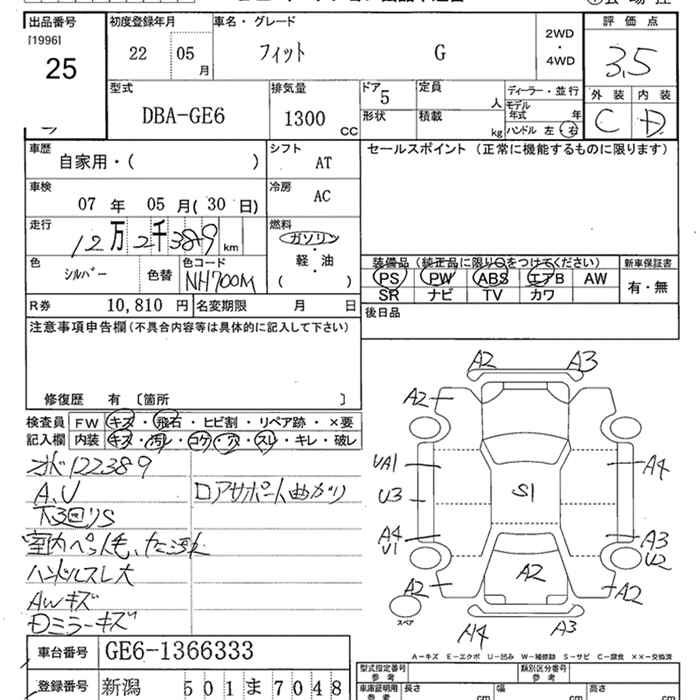 出品番号
[1996]
25
初度登録年月
22 05
月
車名・グレード
フィット G
2WD
・
4WD
評価点
3.5
外装 内装
C D
型式
DBA-GE6
排気量
1300
CC
ドア
5
定員
人
形状
積載
kg
ディーラー・並行
モデル
年式 年
ハンドル 左・右
車歴
自家用・( )
シフト
AT
セールスポイント(正常に機能するものに限ります)
車検
07 年 05 月( 30 日)
冷房
AC
走行
12万2千389 km
燃料
ガソリン
・
軽・油
( )
色
シルバー
色替
色コード
NH700M
装備品(純正品に限り○をつけてください)
新車保証書
PS PW ABS エアB AW
SR ナビ TV カワ
有・無
R券 10,810 円
名変期限 月 日
後日品
注意事項申告欄(不具合内容等は具体的に記入して下さい)
修復歴 有 〔箇所 〕
検査員
記入欄
FW キズ・飛石・ヒビ割・リペア跡・×要
内装 キズ・汚レ・コゲ・穴・スレ・キレ・破レ
オド122389
A.U
ロアサポート曲がり
下3回りS
室内ペット毛、
ハンドルスレ大
AWキズ
ミラーキズ
A2 A3
A2
UA1 A4
U3 S1
A4 A3
U1 U2
A2 A2 A2
スペア
A4 A3
A-キズ E-エクボ U-凹み W-補修跡 S-サビ C-腐食 ××-交換済
車台番号 GE6-1366333
登録番号 新潟 501 ま 7048
型式指定番号
参考
類別区分番号
参考
車庫証明用
参考
長さ cm
幅 cm
高さ cm